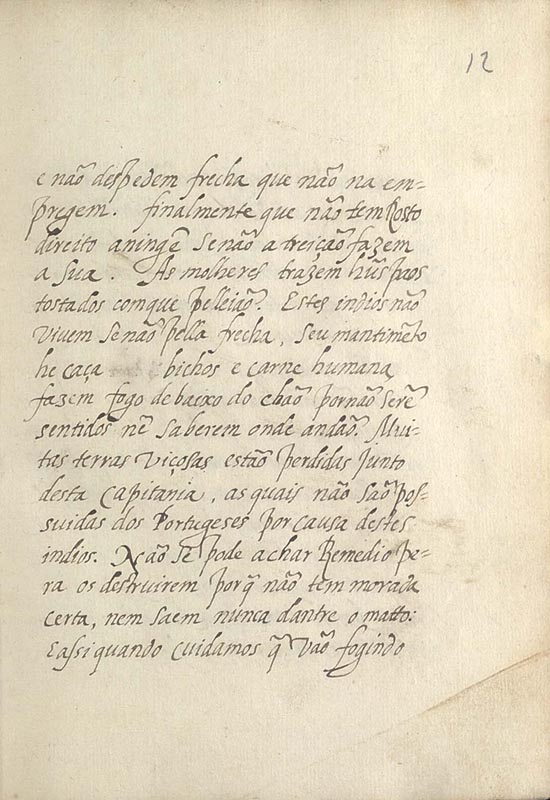 12
e não despedem frecha que não na em-
pregem. finalmente que não tem Rosto
direito a ningẽ senão a treição fazem
a sua. As molheres trazem hũs paos
tostados com que pelleião. Estes indios não
vivem senão pella frecha, seu mantimẽto
he caça bichos e carne humana
fazem fogo debaixo do chão por não serẽ
sentidos nẽ saberem onde andão. Mui-
tas terras viçosas estão perdidas junto
desta Capitania, as quais não são pos-
suidas dos Portugeses por causa destes
indios. Não se pode achar Remedio pe-
ra os destruirem porq̃ não tem morada
certa, nem saem nunca dantre o matto:
E assi quando cuidamos q̃ vão fogindo